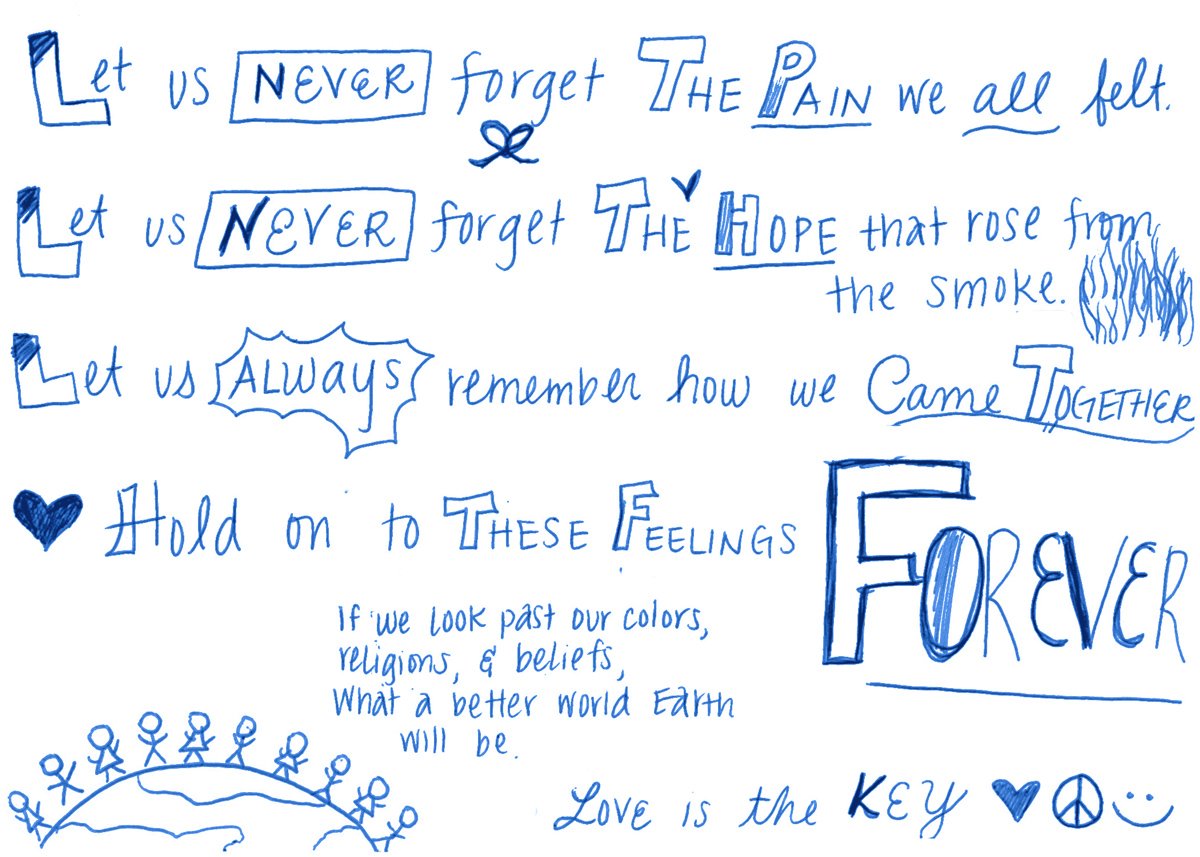 Let us NEVER forget THE PAIN we all felt.
Let us NEVER forget THE HOPE that rose from
the smoke.
Let us ALWAYS remember how we Came TOGETHER
Hold on to THESE FEELINGS FOREVER
If we look past our colors,
religions, & beliefs,
What a better world Earth
will be.
LOVE is the KEY